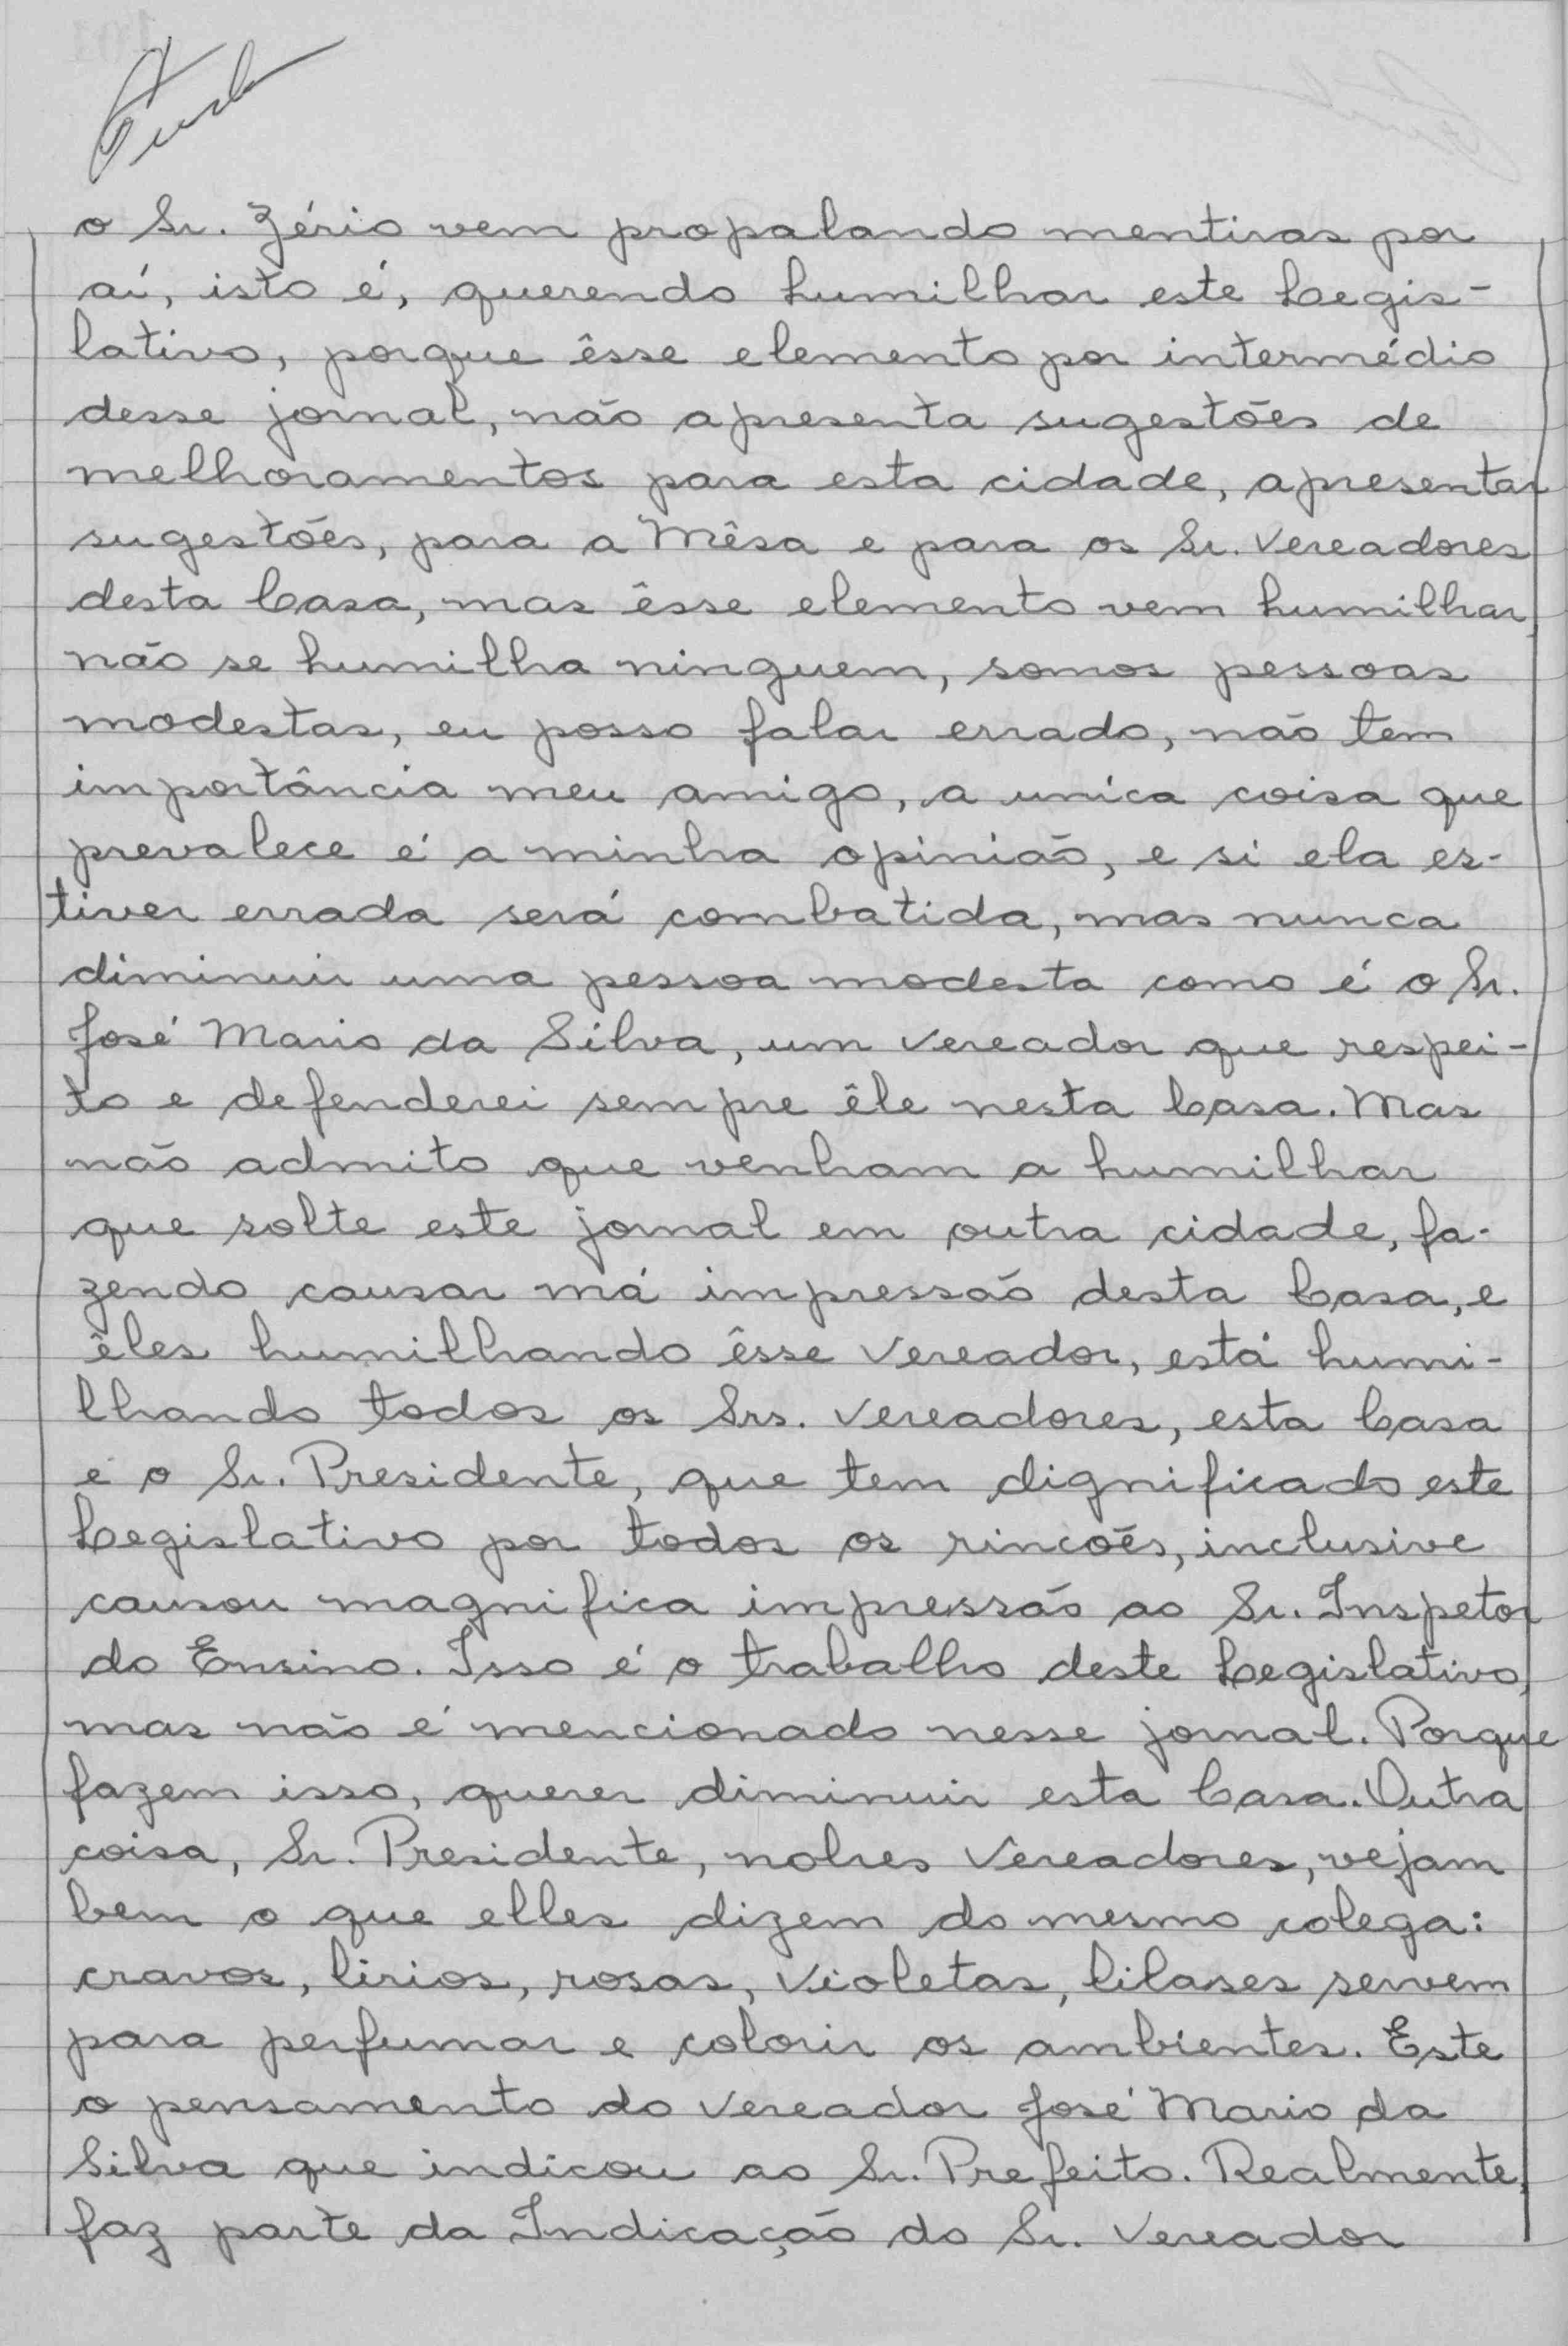 o Sr. Zério vem propalando mentiras por
aí, isto é, querendo humilhar este Legis-
lativo, porque êsse elemento por intermédio
desse jornal, não apresenta sugestões de
melhoramentos para esta cidade, apresentar
sugestões, para a Mêsa e para os Sr. Vereadores
desta Casa, mas êsse elemento vem humilhar,
não se humilha ninguem, somos pessoas
modestas, eu posso falar errado, não tem
importância meu amigo, a unica coisa que
prevalece é a minha opinião, e si ela es-
tiver errada será combatida, mas nunca
diminuir uma pessoa modesta como é o Sr.
José Mario da Silva, um Vereador que respei-
to e defenderei sempre êle nesta Casa. Mas
não admito que venham a humilhar
que solte este jornal em outra cidade, fa-
zendo causar má impressão desta Casa, e
êles humilhando êsse Vereador, está humi-
lhando todos os Srs. Vereadores, esta Casa
e o Sr. Presidente, que tem dignificado este
Legislativo por todos os rincões, inclusive
causou magnifica impressão ao Sr. Inspetor
do Ensino. Isso é o trabalho deste Legislativo,
mas não é mencionado nesse jornal. Porque
fazem isso, querer diminuir esta Casa. Outra
coisa, Sr. Presidente, nobres Vereadores, vejam
bem o que elles dizem do mesmo colega:
cravos, lirios, rosas, Violetas, lilases servem
para perfumar e colorir os ambientes. Este
o pensamento do Vereador José Mario da
Silva que indicou ao Sr. Prefeito. Realmente,
faz parte da Indicação do Sr. Vereador